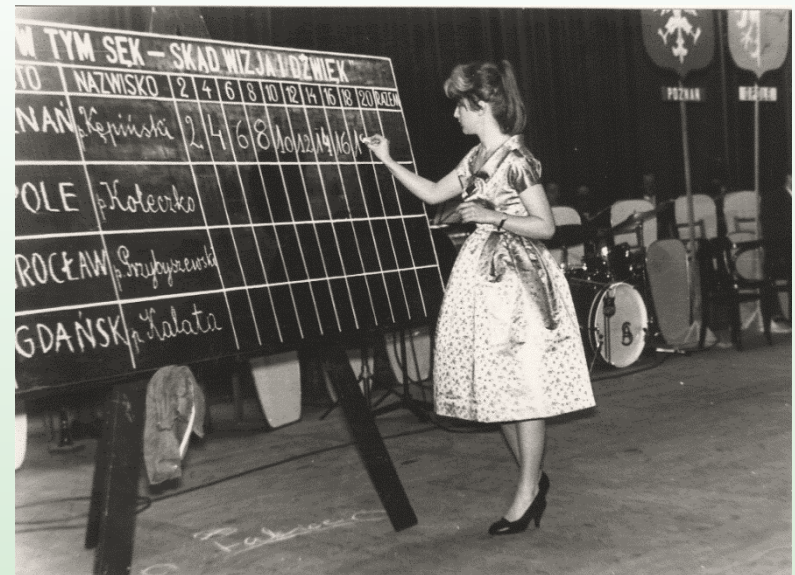 W TYM SĘK – SKĄD WIZJA I DŹWIĘK"
TO NAZWISKO 2 4 6 8 10 12 14 16 18 20 RAZEM
ZNAŃ p. Kępiński 2 4 6 8 10 12 14 16 18
POLE p Kołeczko
ROCŁAW p. Przybyszewski
GDAŃSK p Kałata
POZNAŃ
OPOLE